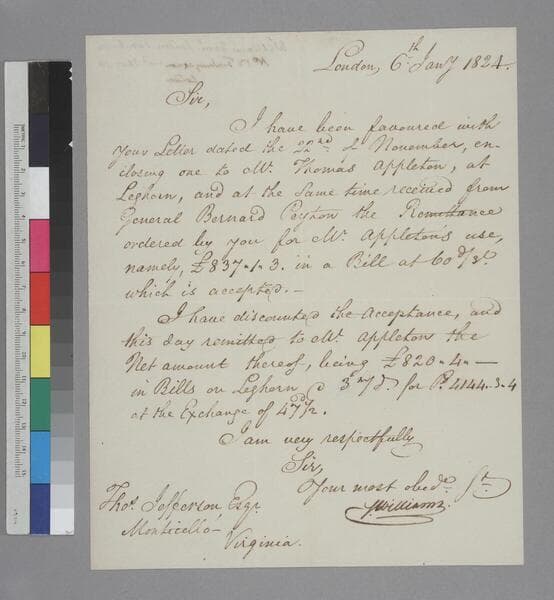 London, 6th Jany 1824.
Sir,
I have been favoured with
your Letter dated the 22nd of November, en-
closing one to Mr. Thomas Appleton, at
Leghorn, and at the same time received from
General Bernard Peyton the Remittance
ordered by you for Mr. Appleton's use,
namely, £837-1-3. in a Bill at 60 d/st.
which is accepted.-
I have discounted the Acceptance, and
this day remitted to Mr. Appleton the
Net amount thereof, being £820-4-
in Bills on Leghorn @ for 4144-3-4
at the Exchange of 47 1/2.
I am very respectfully
Sir,
Your most obedt. St.
Williams.
Thos. Jefferson, Esqr
Monticello-
Virginia.